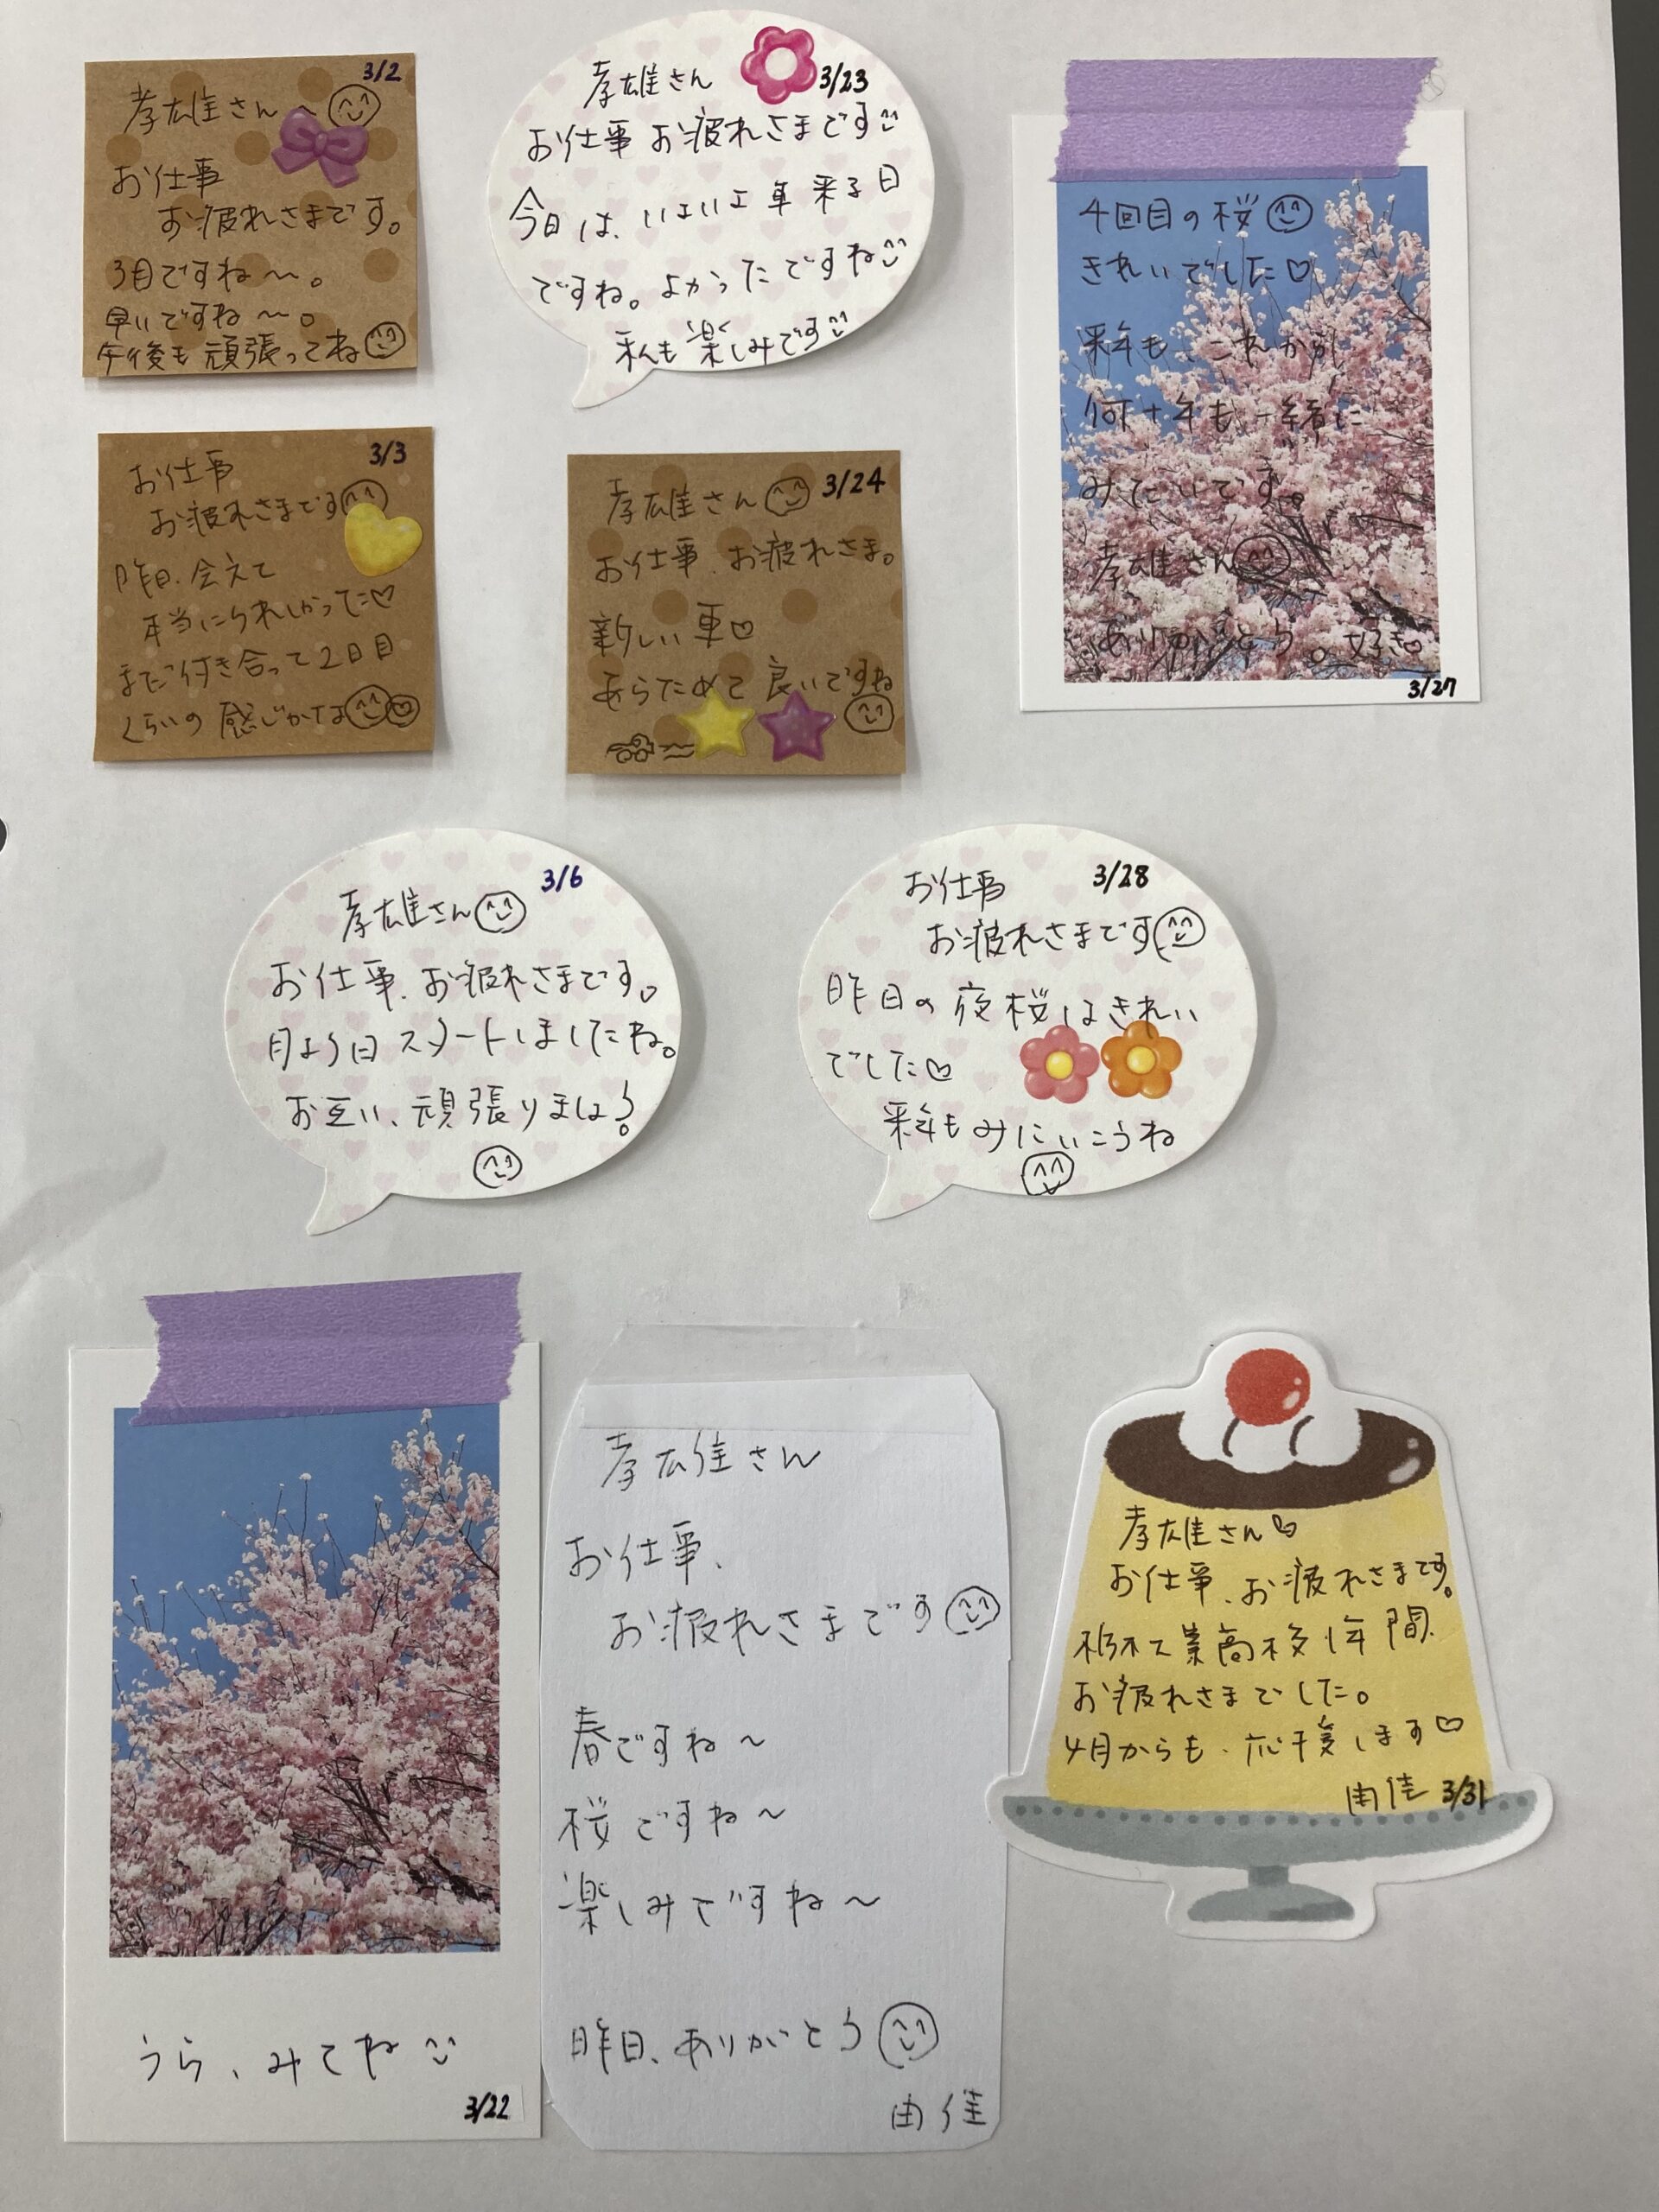 3/2
孝雄さん〜
お仕事
お疲れさまです。
3月ですね〜。
早いですね〜。
午後も頑張ってね
3/3
お仕事
お疲れさまです
昨日、会えて
本当にうれしかった♡
まだ付き合って2日目
くらいの感じかな
3/23
孝雄さん
お仕事 お疲れさまです
今日は、いよいよ車来る日
ですね。よかったですね
私も楽しみです
3/24
孝雄さん
お仕事、お疲れさま。
新しい車♡
あらためて良いですね
4回目の桜
きれいでした♡
来年も、これから
何十年も一緒に
みたいです。
孝雄さん
ありがとう。好き♡
3/27
3/6
孝雄さん
お仕事、お疲れさまです。
月よう日スタートしましたね。
お互い、頑張りましょう
3/28
お仕事
お疲れさまです
昨日の夜桜はきれい
でした♡
来年もみにいこうね
うら、みてね
3/22
孝雄さん
お仕事、
お疲れさまです
春ですね〜
桜ですね〜
楽しみですね〜
昨日、ありがとう
由佳
孝雄さん♡
お仕事、お疲れさまです。
栃木工業高校1年間、
お疲れさまでした。
4月からも、応援します♡
由佳 3/31